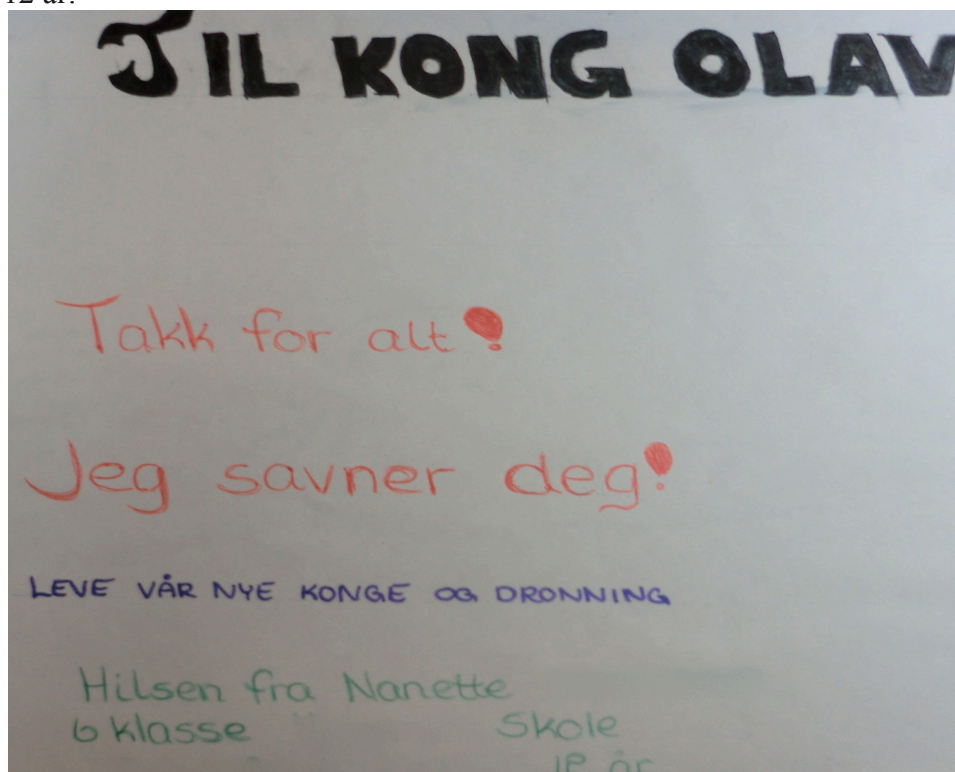 12 år.
TIL KONG OLAV
Takk for alt!
Jeg savner deg!
LEVE VÅR NYE KONGE OG DRONNING
Hilsen fra Nanette
6 klasse Skole
år